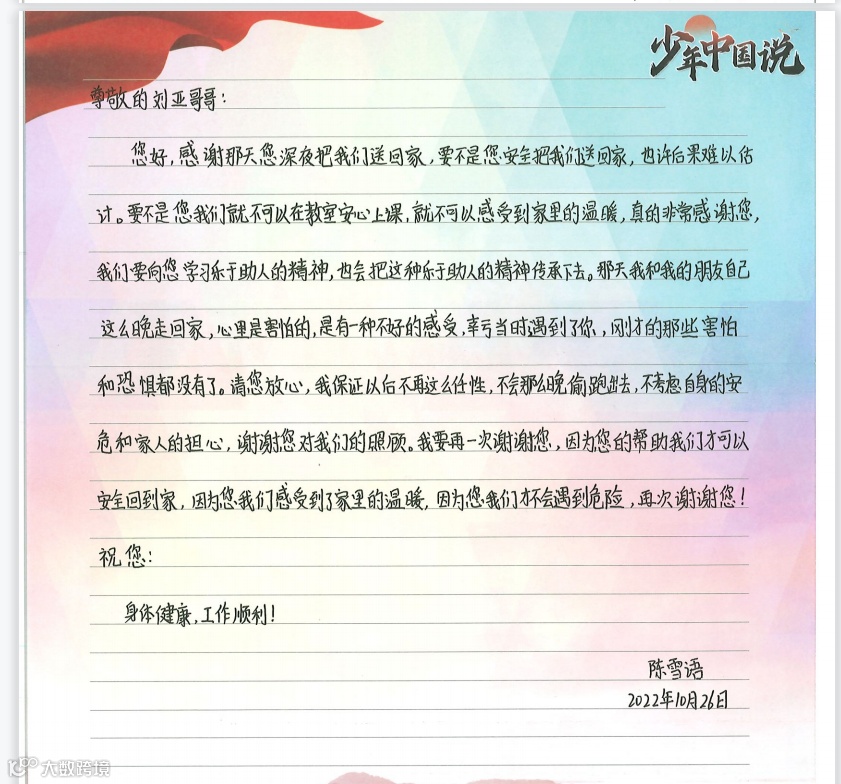 少年中国说
尊敬的刘亚哥哥：
您好，感谢那天您深夜把我们送回家，要不是您安全把我们送回家，也许后果难以估
计。要不是您我们就不可以在教室安心上课，就不可以感受到家里的温暖，真的非常感谢您，
我们要向您学习乐于助人的精神，也会把这种乐于助人的精神传承下去。那天我和我的朋友自己
这么晚走回家，心里是害怕的，是有一种不好的感受，幸亏当时遇到了你，刚才的那些害怕
和恐惧都没有了。请您放心，我保证以后不再这么任性，不会那么晚偷跑出去，不考虑自身的安
危和家人的担心，谢谢您对我们的照顾。我要再一次谢谢您，因为您的帮助我们才可以
安全回到家，因为您我们感受到了家里的温暖，因为您我们才不会遇到危险，再次谢谢您！
祝您：
身体健康，工作顺利！
陈雪语
2022年10月26日
大数跨境